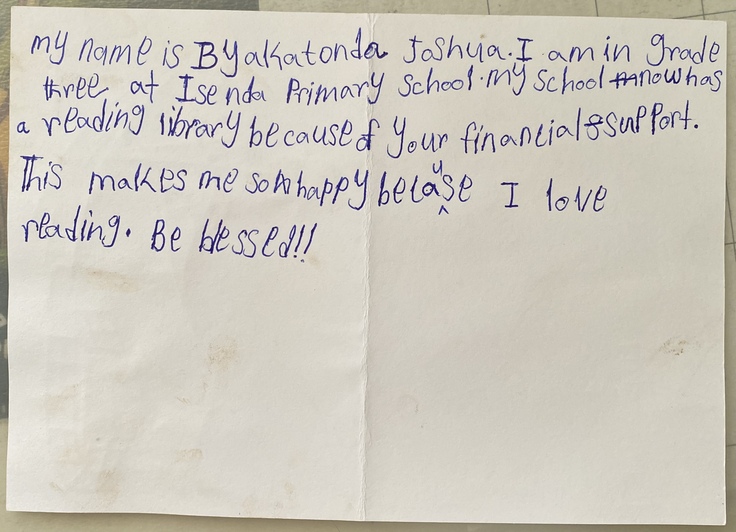 my name is Byakatonda Joshua. I am in grade
three at Isenda Primary School. my School now has
a reading library because of your financial support.
This makes me so happy because I love
reading. Be blessed!!